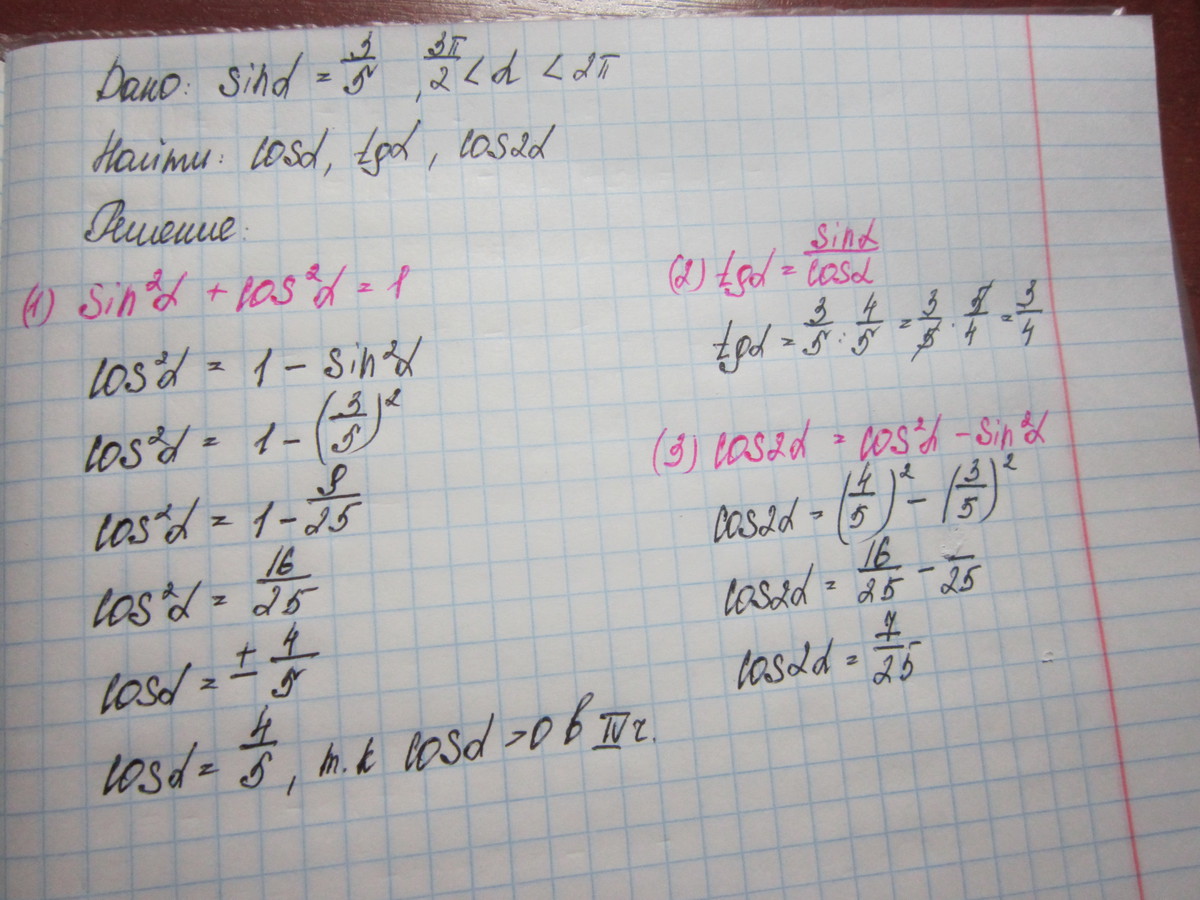 Дано: sinα = 3/5 , 3π/2 < α < 2π
Найти: cosα, tgα, cos2α
Решение:
(1) sin²α + cos²α = 1
cos²α = 1 - sin²α
cos²α = 1 - (3/5)²
cos²α = 1 - 9/25
cos²α = 16/25
cosα = ± 4/5
cosα = 4/5, т.к cosα >0 в IV ч.
(2) tgα = sinα/cosα
tgα = 3/5 : 4/5 = 3/5 · 5/4 = 3/4
(3) cos2α = cos²α - sin²α
cos2α = (4/5)² - (3/5)²
cos2α = 16/25 - /25
cos2α = 7/25